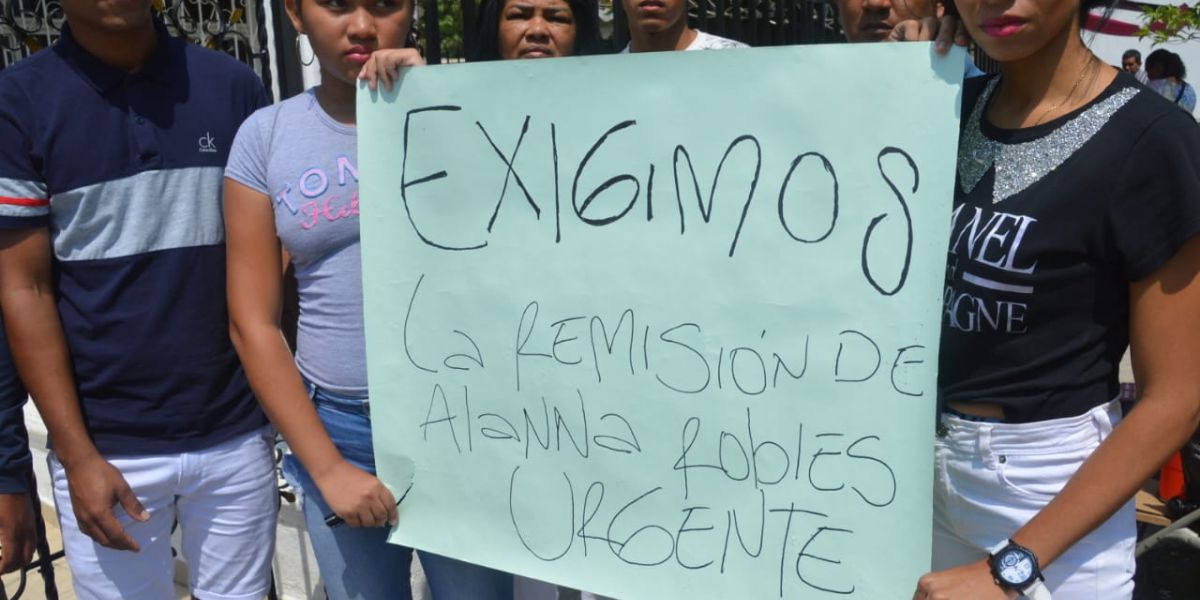 EXIGIMOS
La REMISIÓN DE
Alanna Robles
URGENTE
ck
TON
NEL
AGNE